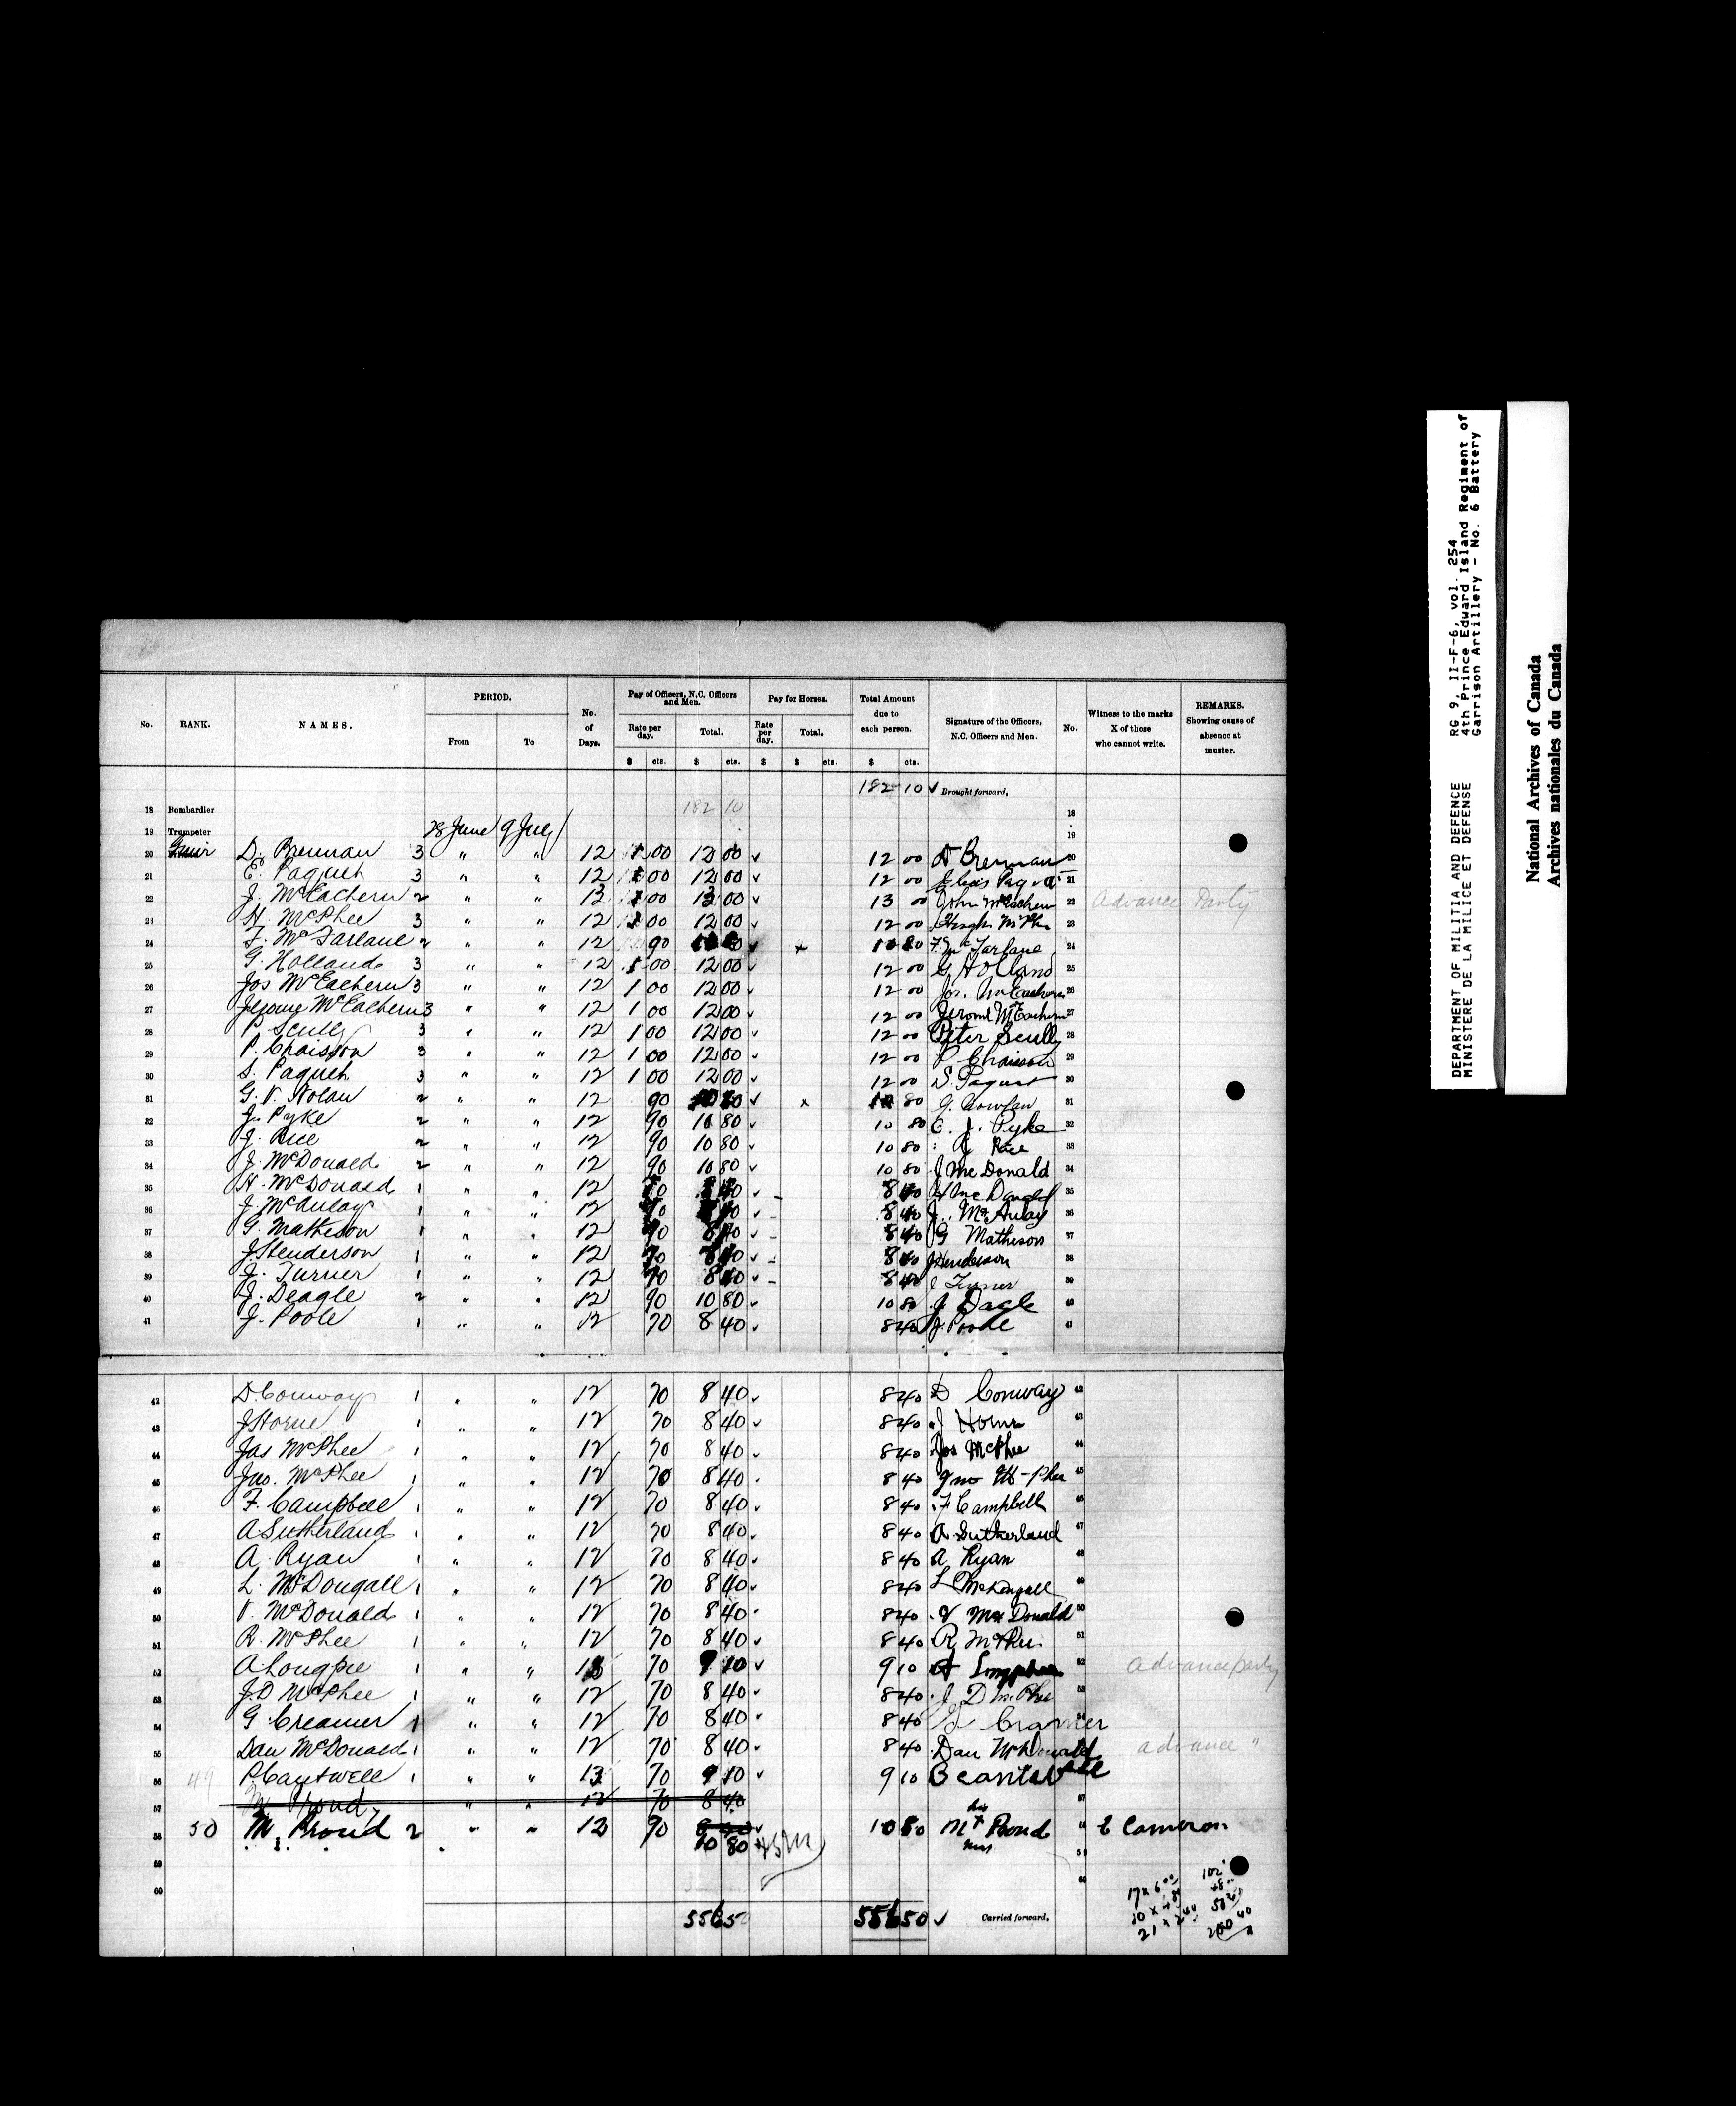 No. RANK. NAMES. PERIOD. From To No. of Days. Pay of Officers, N.C. Officers and Men. Rate per day. $ cts. Total. $ cts. Pay for Horses. Rate per day. $ Total. $ cts. Total Amount due to each person. $ cts. Signature of the Officers, N.C. Officers and Men. No. Witness to the marks X of those who cannot write. REMARKS. Showing cause of absence at muster.
182 10 ✓ Brought forward,
18 Bombardier 182 10 18
19 Trumpeter 28 June 9 July 19
20 D. Brennan 3 " " 12 1 00 12 00 ✓ 12 00 D Brennan 20
21 E. Paquet 3 " " 12 1 00 12 00 ✓ 12 00 21
22 J. McEachern 2 " " 13 1 00 13 00 ✓ 13 00 John McEachern 22 Advance Party
23 H. McPhee 3 " " 12 1 00 12 00 ✓ 12 00 Hugh McPhee 23
24 F. McFarlane 2 " " 12 90 10 80 ✓ x 10 80 F. McFarlane 24
25 G. Holland 3 " " 12 1 00 12 00 ✓ 12 00 G Holland 25
26 Jos McEachern 3 " " 12 1 00 12 00 ✓ 12 00 Jos. McEachern 26
27 Jerome McEachern 3 " " 12 1 00 12 00 ✓ 12 00 Jerome McEachern 27
28 P. Scully 3 " " 12 1 00 12 00 ✓ 12 00 Peter Scully 28
29 P. Chaisson 3 " " 12 1 00 12 00 ✓ 12 00 P Chaisson 29
30 S. Paquet 3 " " 12 1 00 12 00 ✓ 12 00 S. Paquet 30
31 G. V. Nolan 2 " " 12 90 10 80 ✓ x 10 80 31
32 J. Pyke 2 " " 12 90 10 80 ✓ 10 80 E. J. Pyke 32
33 J. Rice 2 " " 12 90 10 80 ✓ 10 80 J Rice 33
34 J. McDonald 2 " " 12 90 10 80 ✓ 10 80 J McDonald 34
35 H. McDonald 1 " " 12 70 8 40 ✓ 8 40 H McDonald 35
36 J. McAulay 1 " " 12 70 8 40 ✓ 8 40 J. McAulay 36
37 G. Matheson 1 " " 12 70 8 40 ✓ 8 40 G Mathison 37
38 J Henderson 1 " " 12 70 8 40 ✓ 8 40 J Henderson 38
39 J. Turner 1 " " 12 70 8 40 ✓ 8 40 J Turner 39
40 J. Deagle 2 " " 12 90 10 80 ✓ 10 80 J Dagle 40
41 J. Poole 1 " " 12 70 8 40 ✓ 8 40 J. Poole 41
42 D. Conway 1 " " 12 70 8 40 ✓ 8 40 D Conway 42
43 J Horne 1 " " 12 70 8 40 ✓ 8 40 J Horne 43
44 Jas McPhee 1 " " 12 70 8 40 ✓ 8 40 Jas McPhee 44
45 Jno. McPhee 1 " " 12 70 8 40 8 40 Jno McPhee 45
46 F. Campbell 1 " " 12 70 8 40 ✓ 8 40 F Campbell 46
47 A Sutherland 1 " " 12 70 8 40 ✓ 8 40 A. Sutherland 47
48 A. Ryan 1 " " 12 70 8 40 ✓ 8 40 A Ryan 48
49 L. McDougall 1 " " 12 70 8 40 ✓ 8 40 L McDougall 49
50 V. McDonald 1 " " 12 70 8 40 8 40 V McDonald 50
51 R. McPhee 1 " " 12 70 8 40 ✓ 8 40 R McPhee 51
52 A Longpee 1 " " 13 70 9 10 ✓ 9 10 52 advance party
53 J. D McPhee 1 " " 12 70 8 40 ✓ 8 40 J D McPhee 53
54 G Creamer 1 " " 12 70 8 40 ✓ 8 40 Cramer 54
55 Dan McDonald 1 " " 12 70 8 40 ✓ 8 40 Dan McDonald advance "
49 56 P. Cantwell 1 " " 13 70 9 10 ✓ 9 10
57 M Proud " " 12 70 8 40 57
50 58 M. Proud 2 " " 12 90 8 40 ✓ 10 80 his M x Proud 58 E Cameron
10 80
59 59
60 60
556 50 556 50 ✓ Carried forward,
17 x 6 00 102
10 x 4 80 48
21 x 2 40 50 40
200 40
DEPARTMENT OF MILITIA AND DEFENCE
MINISTERE DE LA MILICE ET DEFENSE
RG 9, II-F-6, vol. 254
4th Prince Edward Island Regiment of
Garrison Artillery - No. 6 Battery
National Archives of Canada
Archives nationales du Canada